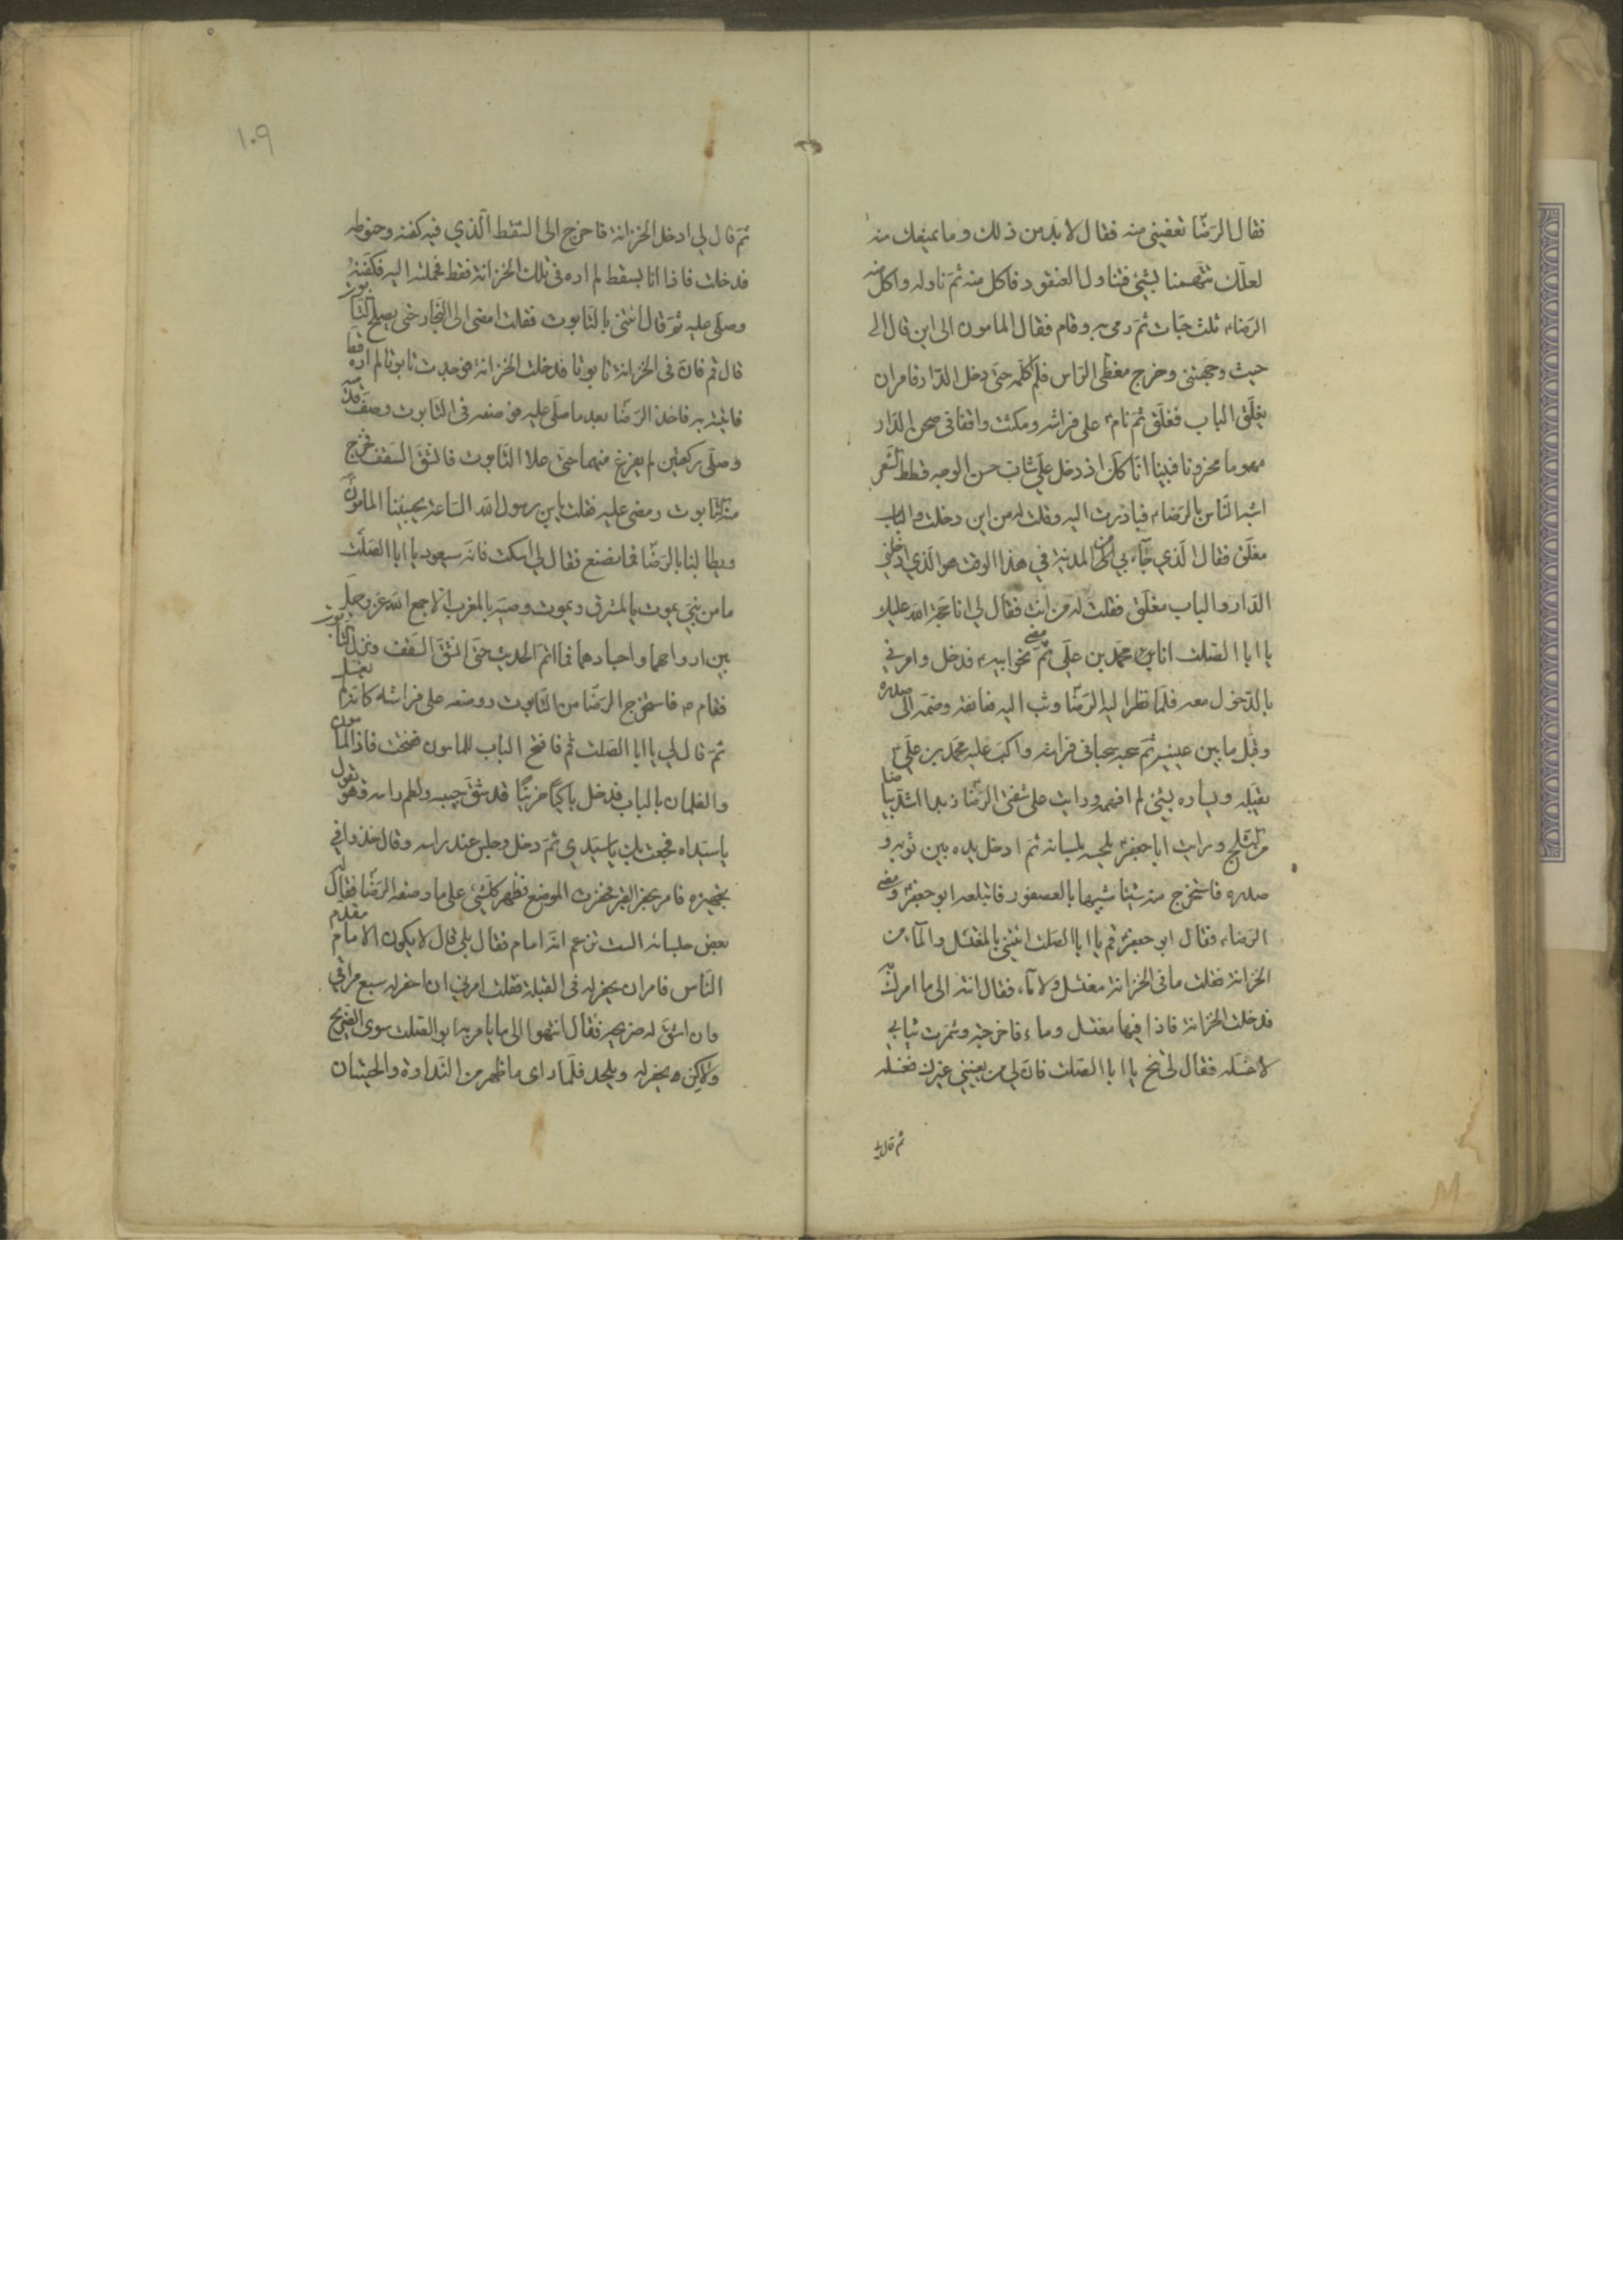 فقال الرضا تعفيني منه فقال لا بد من ذلك وما يمنعك منه
لعلك تتهمنا بشئ فتناول العنقود فاكل منه ثم ناوله واكل منه
الرضاء ثلث حبات ثم رمى به وقام فقال المامون الى اين قال الى
حيث وجهتني وخرج مغطى الراس فلم اكلمه حتى دخل الدار فامر ان
يغلق الباب فغلق ثم نام على فراشه ومكثت واقفا في صحن الدار
مهموما محزونا فبينا انا كذلك اذ دخل علي شاب حسن الوجه قطط الشعر
اشبه الناس بالرضاء فبادرت اليه وقلت له من اين دخلت والباب
مغلق فقال الذي جاء بي من المدينة في هذا الوقت هو الذي ادخلني
الدار والباب مغلق فقلت له من انت فقال لي انا حجة الله عليك
يا ابا الصلت انا محمد بن علي ثم مضى نحو ابيه فدخل وامرني
بالدخول معه فلما نظر اليه الرضا وثب اليه فعانقه وضمه الى صدره
وقبل ما بين عينيه ثم سحبه سحبا في فراشه واكب عليه محمد بن علي
يقبله ويساره بشئ لم افهمه ورايت على شفتي الرضا زبدا اشد بياضا
من الثلج ورايت ابا جعفر يلحسه بلسانه ثم ادخل يده بين ثوبه و
صدره فاستخرج منه شيئا شبيها بالعصفور فابتلعه ابو جعفر ومضى
الرضاء فقال ابو جعفر قم يا ابا الصلت ائتني بالمغتسل والماء من
الخزانة فقلت ما في الخزانة مغتسل ولا ماء فقال انته الى ما امرك به
فدخلت الخزانة فاذا فيها مغتسل وماء فاخرجته وشمرت ثيابي
لاغسله فقال لي تنح يا ابا الصلت فان لي من يعينني غيرك فغسله
ثم قال لي
١٠٩
ثم قال لي ادخل الخزانة فاخرج الى السفط الذي فيه كفنه وحنوطه
فدخلت فاذا انا بسفط لم اره في تلك الخزانة فقط فحملته اليه فكفنه
وصلى عليه ثم قال ائتني بالتابوت فقلت امضي الى النجار حتى يصلح التابوت
قال قم فان في الخزانة تابوتا فدخلت الخزانة فوجدت تابوتا لم اره قط
فاتيته به فاخذ الرضا بعد ما صلى عليه فوضعه في التابوت وصف قدميه
وصلى ركعتين لم يفرغ منهما حتى علا التابوت فانشق السقف فخرج
منه التابوت ومضى عليه فقلت يابن رسول الله الساعة يجيئنا المامون
ويطالبنا بالرضا فما نصنع فقال لي اسكت فانه سيعود يا ابا الصلت
ما من نبي يموت بالمشرق ويموت وصيه بالمغرب الا جمع الله عز وجل
بين ارواحهما واجسادهما فما اتم الحديث حتى انشق السقف ونزل التابوت
فقام فاستخرج الرضا من التابوت ووضعه على فراشه كانه لم يغسل
ثم قال لي يا ابا الصلت قم فافتح الباب للمامون ففتحت فاذا المامون
والغلمان بالباب فدخل باكيا حزينا قد شق جيبه ولطم راسه وهو يقول
يا سيداه فجعت بك يا سيدي ثم دخل وجلس عند راسه وقال خذوا في
تجهيزه فامر بحفر القبر فحفرت الموضع فظهر كل شئ على ما وصفه الرضا فقال له
بعض جلسائه الست تزعم انه امام فقال بلى قال لا يكون الامام مقدم
الناس فامر ان يحفر له في القبلة فقلت امرني ان احفر له سبع مراقي
وان اشق له ضريحه فقال انتهوا الى ما يامر به ابو الصلت سوى الضريح
ولكن يحفر له ويلحد فلما راى ما ظهر من النداوة والحيتان